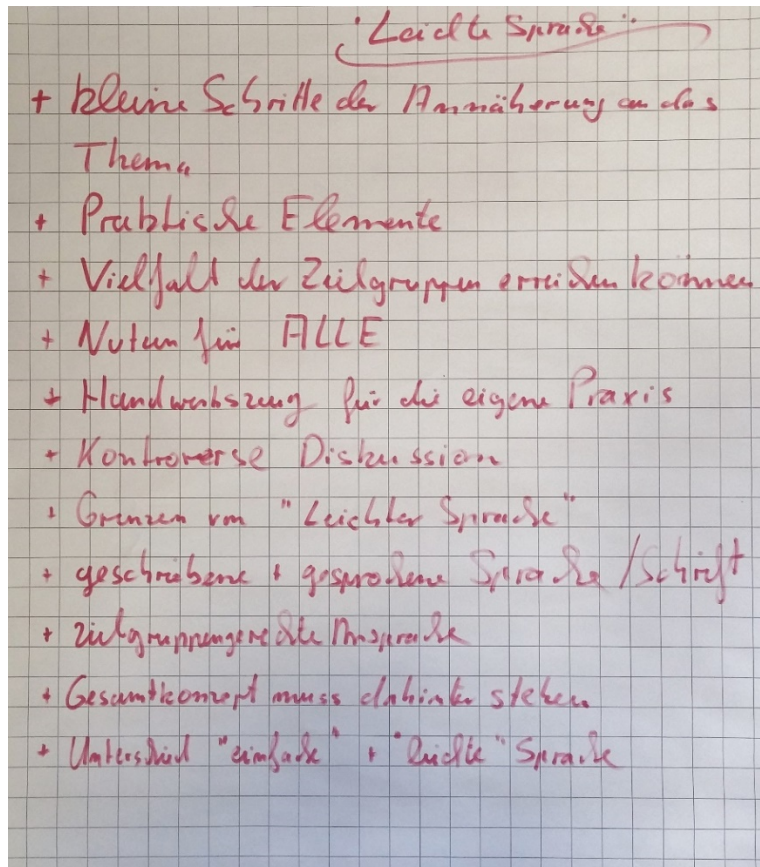 "Leichte Sprache"
+ kleine Schritte der Annäherung an das
Thema
+ Praktische Elemente
+ Vielfalt der Zielgruppen erreichen können
+ Nutzen für ALLE
+ Handwerkszeug für die eigene Praxis
+ Kontroverse Diskussion
+ Grenzen von "Leichter Sprache"
+ geschriebene + gesprochene Sprache/Schrift
+ zielgruppengerechte Ansprache
+ Gesamtkonzept muss dahinter stehen
+ Unterschied "einfache" + "leichte" Sprache